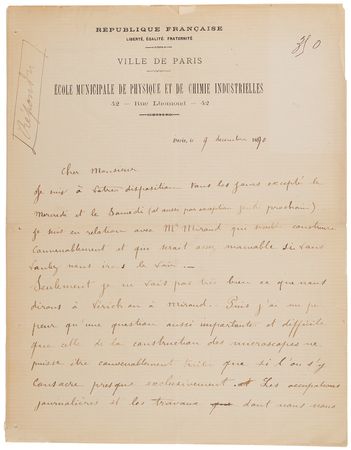 RÉPUBLIQUE FRANÇAISE
LIBERTÉ, ÉGALITÉ, FRATERNITÉ
VILLE DE PARIS
ÉCOLE MUNICIPALE DE PHYSIQUE ET DE CHIMIE INDUSTRIELLES
42 — Rue Lhomond — 42
Paris, le 9 décembre 1890
Cher Monsieur
Je suis à votre disposition tous les jours excepté le
mercredi et le Samedi (et aussi par exception jeudi prochain)
Je suis en relation avec Mr Mirand qui semble construire
convenablement et qui serait assez maniable si vous
voulez nous irons le voir. —
Seulement je ne sais pas très bien ce que nous
dirons à Verick ou à Mirand. Puis j'ai un peu
peur qu'une question aussi importante et difficile
que celle de la construction des microscopes ne
puisse être convenablement traitée que si l'on s'y
consacre presque exclusivement. Les occupations
journalières et les travaux dont nous nous